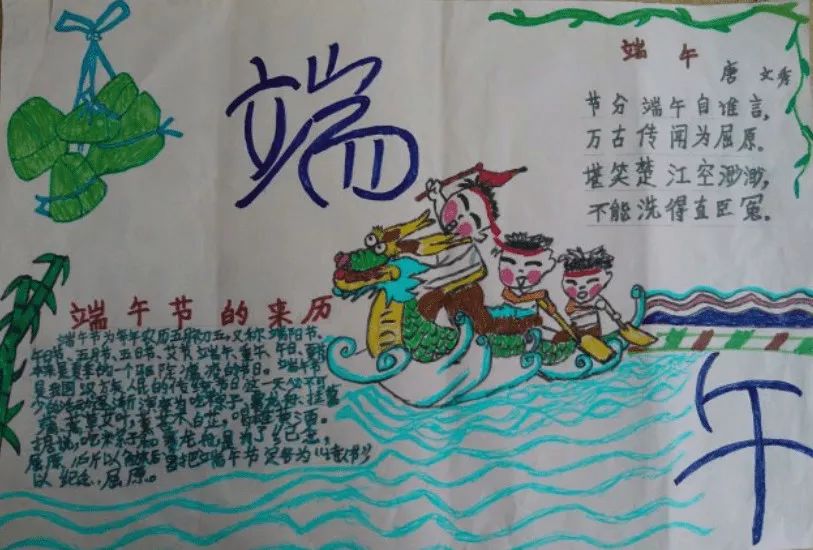 端
午
端 午
唐 文秀
节分端午自谁言,
万古传闻为屈原.
堪笑楚江空渺渺,
不能洗得直臣冤.
端午节的来历
端午节为每年农历五月初五,又称端阳节、
午日节、五月节、五日节、艾节、端午、重午、午日、夏节
本来是夏季的一个驱除瘟疫的节日。端午节
是我国汉族人民的传统节日这一天必不可
少的活动逐渐演变为吃粽子,赛龙舟,挂菖
喝雄黄酒。
据说,吃粽子和赛龙舟是为了纪念
屈原,所以
以纪念屈原。